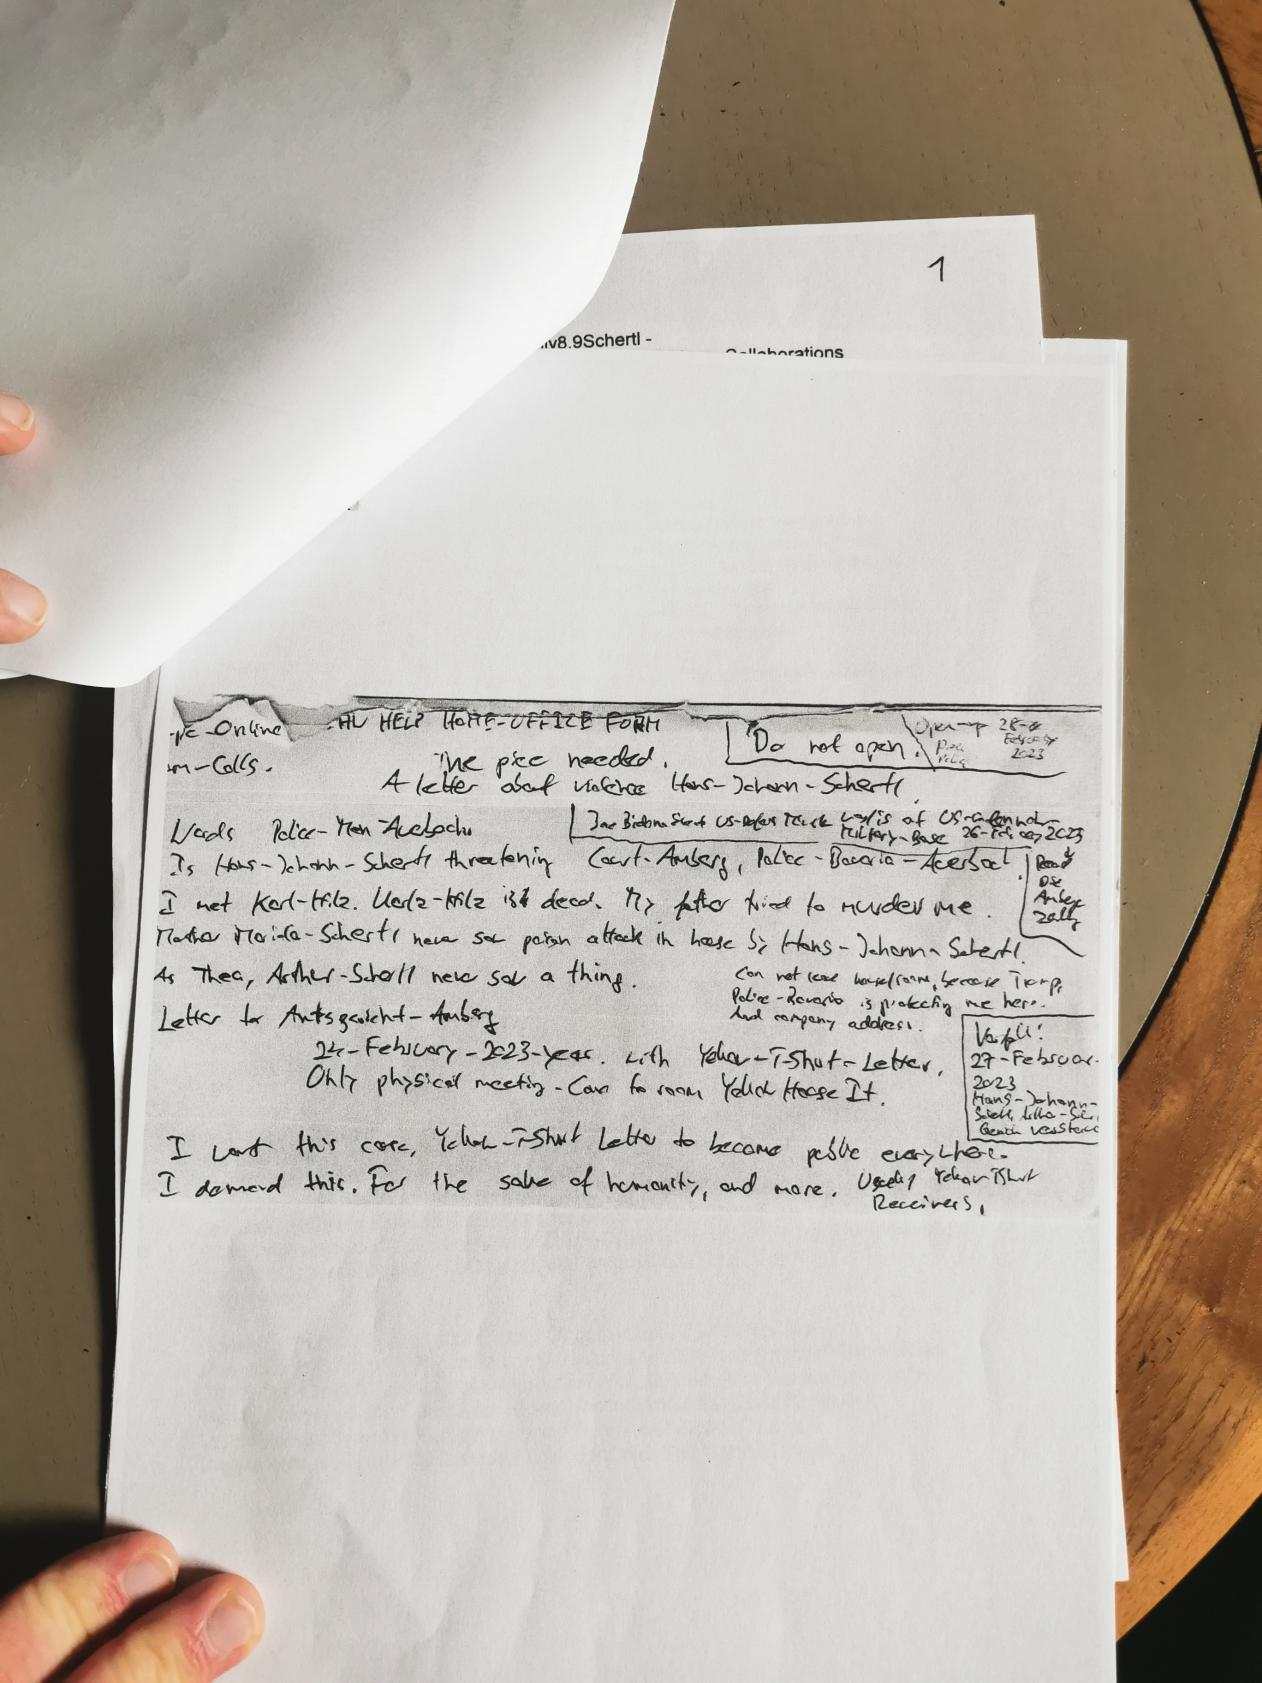 1
v8.9Schertl -
Collaborations
-Online
HELP HOME-OFFICE FORM
Do not open.
Open-up 28-
February
2023
-Calls.
The piece needed.
A letter about violence Hans-Johann-Schertl
Police-Men-Auerbach
US-
Military-Base 26-February 2023
Is Hans-Johann-Schertl threatening Court-Amberg, Police-Bavaria-Auerbach.
Read
Amberg
I met Karl-Hilz. Karl-Hilz is dead. My father tried to murder me.
Mother Marita-Schertl never saw poison attack in house by Hans-Johann-Schertl.
As Thea, Arthur-Schertl never saw a thing.
Can not leave house/room, because Trump,
Police-Bavaria is protecting me here.
And company address.
Letter for Amtsgericht-Amberg
24-February-2023-year. with Yellow-T-Shirt-Letter.
Only physical meeting - Come to room Yellow House It.
27-Februar-
2023
Hans-Johann-
I want this case, Yellow-T-Shirt Letter to become public everywhere.
I demand this. For the sake of humanity, and more.
Yellow TShirt
Receivers,